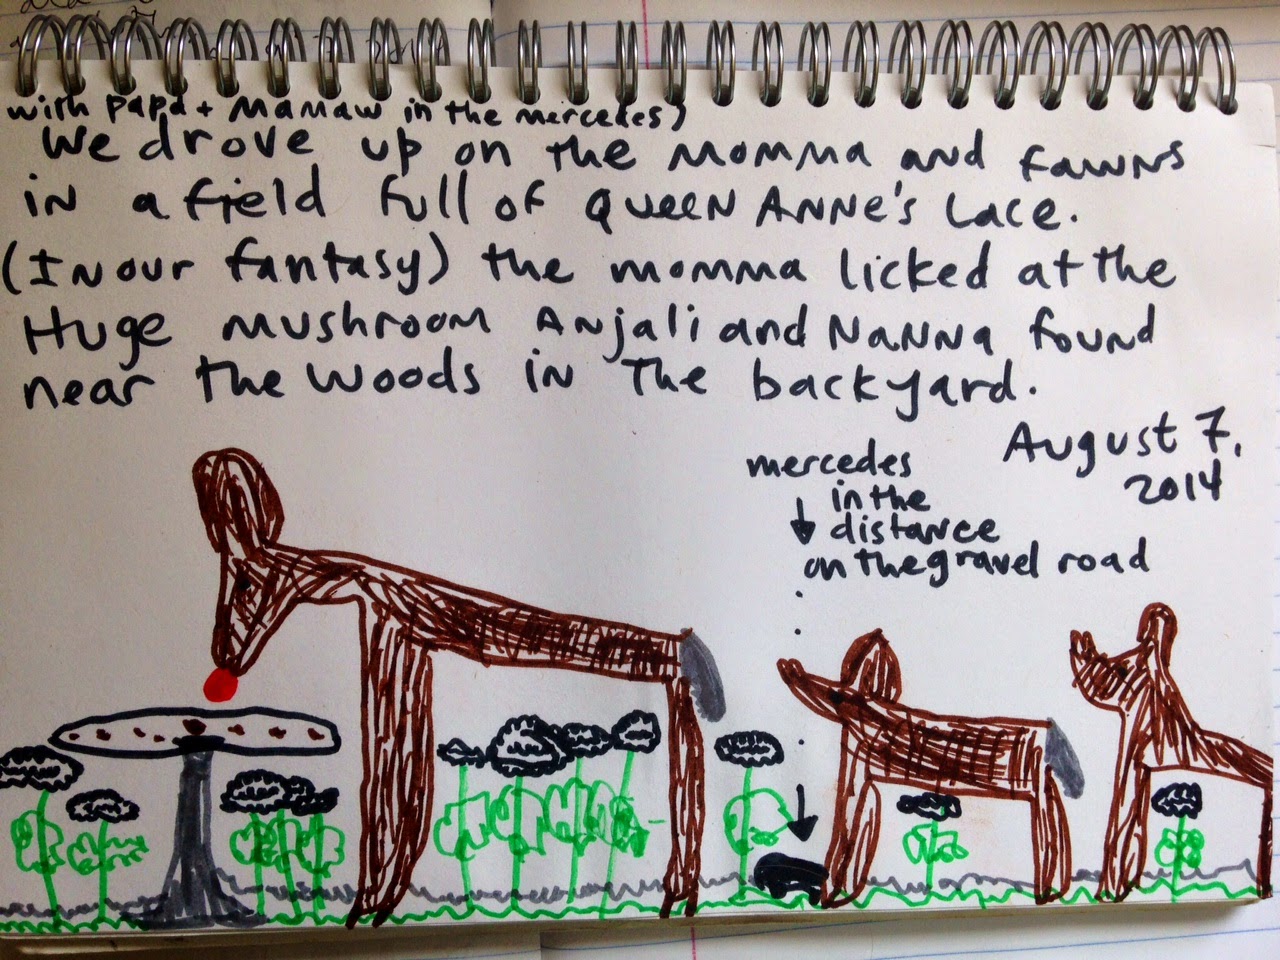 with papa + Mamaw in the mercedes)
We drove up on the momma and fawns
in a field full of Queen Anne's Lace.
(In our fantasy) the momma licked at the
Huge mushroom Anjali and Nanna found
near the woods in the backyard.
August 7,
2014
mercedes
in the
distance
on the gravel road